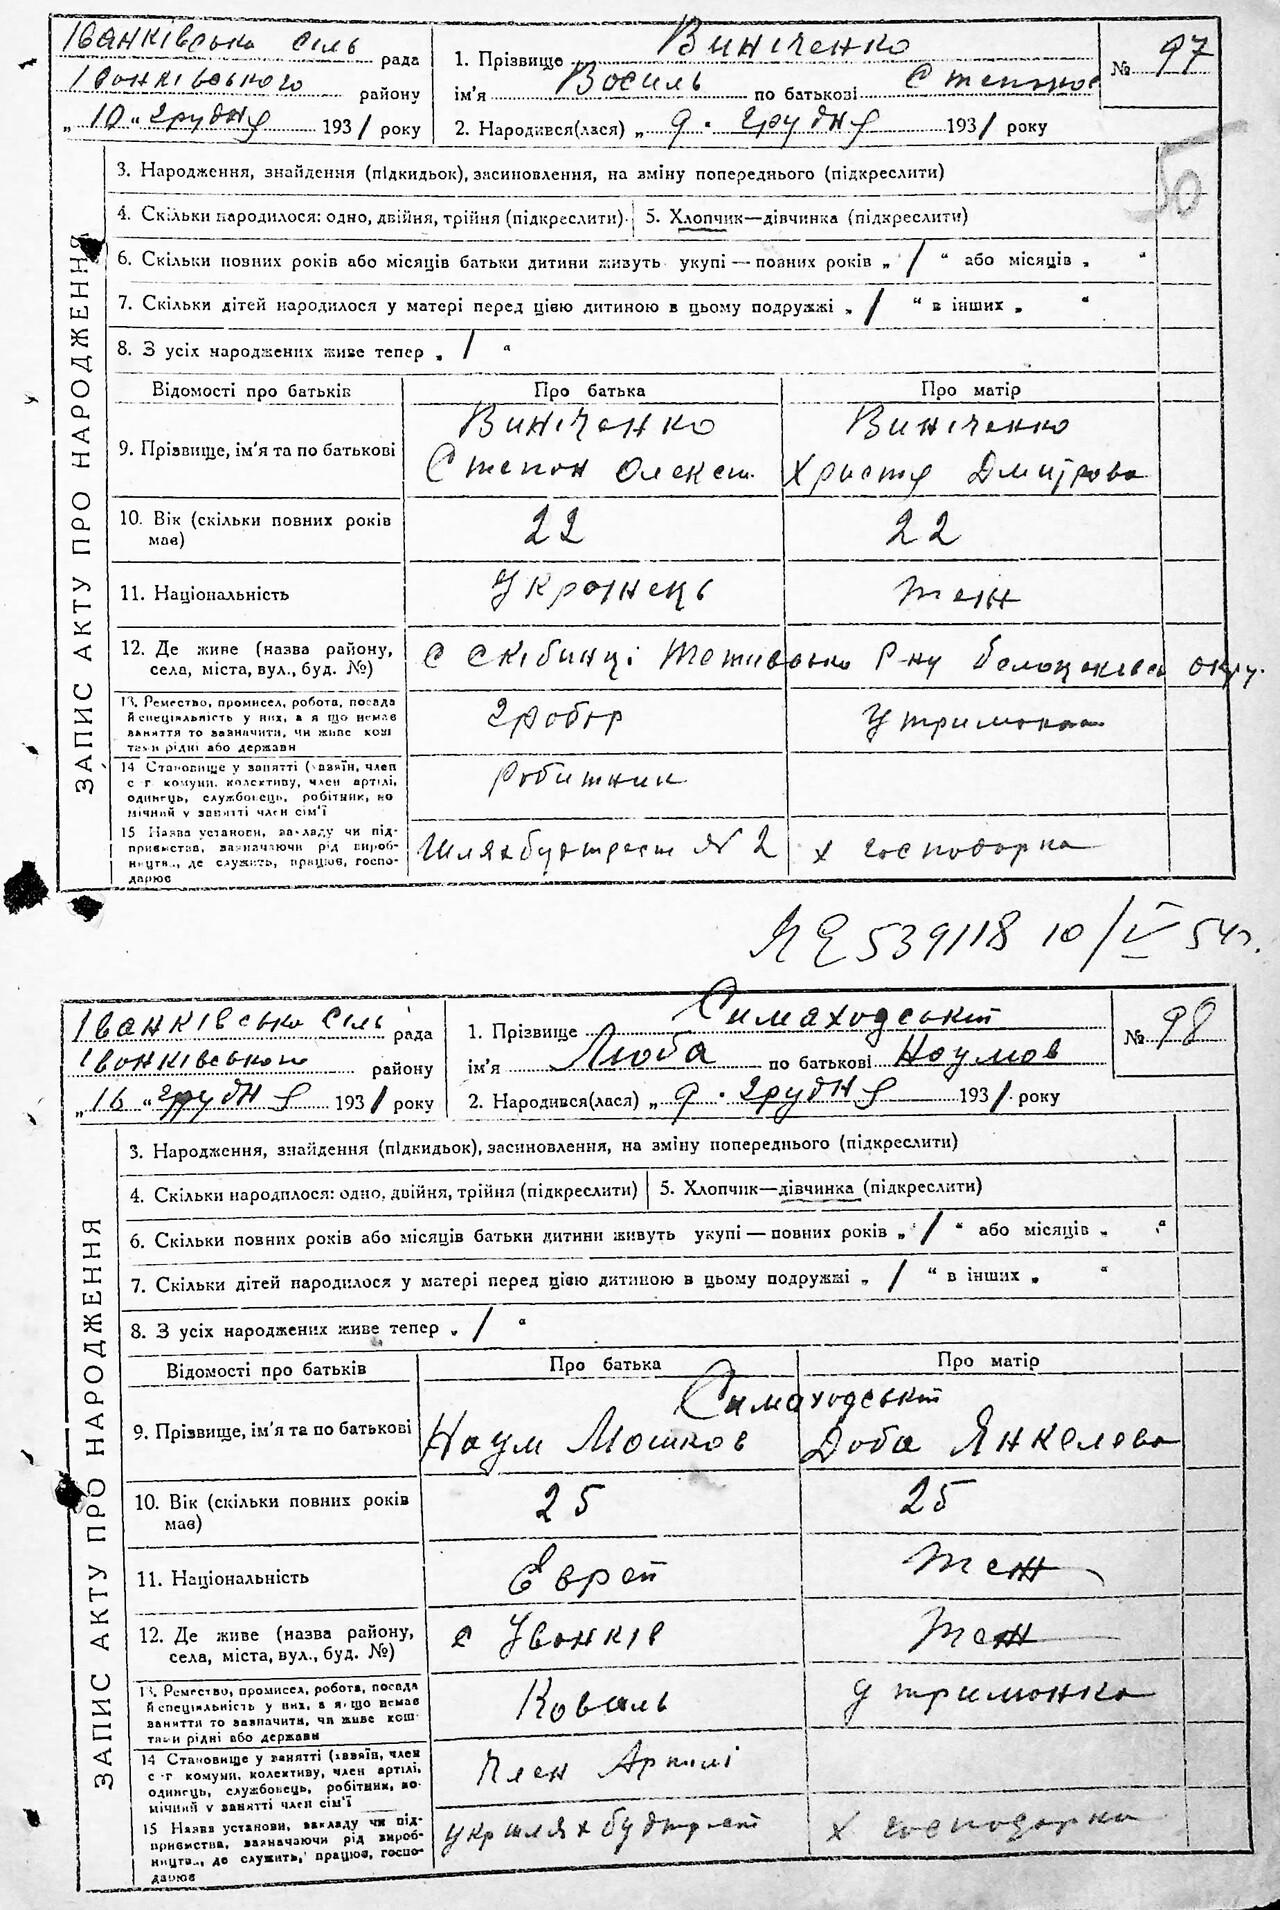 Іванківська сіль рада
Іванківського району
„ 10 „ грудня 1931 року
1. Прізвище Виніченко
ім'я Василь по батькові Степанов
2. Народився(лася) „ 9 . грудня 1931 року
№ 97
3. Народження, знайдення (підкидьок), засиновлення, на зміну попереднього (підкреслити)
4. Скільки народилося: одно, двійня, трійня (підкреслити).
5. Хлопчик—дівчинка (підкреслити)
6. Скільки повних років або місяців батьки дитини живуть укупі — повних років „ 1 “ або місяців „ “
7. Скільки дітей народилося у матері перед цією дитиною в цьому подружжі „ 1 “ в інших „ “
8. З усіх народжених живе тепер „ 1 “
ЗАПИС АКТУ ПРО НАРОДЖЕННЯ
Відомості про батьків Про батька Про матір
9. Прізвище, ім'я та по батькові
Виніченко Виніченко
Степан Олекс. Христя Дмитрова
10. Вік (скільки повних років має) 22 22
11. Національність Українець теж
12. Де живе (назва району, села, міста, вул., буд. №)
с Скібинці р-ну округ.
13. Ремество, промисел, робота, посада й спеціяльність у них, а якщо немає заняття то зазначити, чи живе коштами рідні або держави
грабар Утриманка
14 Становище у занятті (хазяїн, член с-г комуни, колективу, член артілі, одинець, службовець, робітник, помічний у занятті член сім'ї
Робитник
15 Назва установи, закладу чи підприємства, зазначаючи рід виробництва, де служить, працює, господарює
Шляхбудтрест № 2 х господарка
539118 10/V 54г.
Іванківська сіль рада
Іванківського району
„ 16 „ грудня 1931 року
1. Прізвище Симаходський
ім'я Люба по батькові Наумов
2. Народився(лася) „ 9 . грудня 1931 року
№ 98
3. Народження, знайдення (підкидьок), засиновлення, на зміну попереднього (підкреслити)
4. Скільки народилося: одно, двійня, трійня (підкреслити)
5. Хлопчик—дівчинка (підкреслити)
6. Скільки повних років або місяців батьки дитини живуть укупі — повних років „ 1 “ або місяців „ “
7. Скільки дітей народилося у матері перед цією дитиною в цьому подружжі „ 1 “ в інших „ “
8. З усіх народжених живе тепер „ 1 “
ЗАПИС АКТУ ПРО НАРОДЖЕННЯ
Відомості про батьків Про батька Про матір
9. Прізвище, ім'я та по батькові
Симаходський
Наум Мошков Доба Янкелева
10. Вік (скільки повних років має) 25 25
11. Національність Єврей теж
12. Де живе (назва району, села, міста, вул., буд. №)
с Іванків теж
13. Ремество, промисел, робота, посада й спеціяльність у них, а якщо немає заняття то зазначити, чи живе коштами рідні або держави
Коваль Утриманка
14 Становище у занятті (хазяїн, член с-г комуни, колективу, член артілі, одинець, службовець, робітник, помічний у занятті член сім'ї
Член Артілі
15 Назва установи, закладу чи підприємства, зазначаючи рід виробництва, де служить, працює, господарює
Укршляхбудтрест х господарка